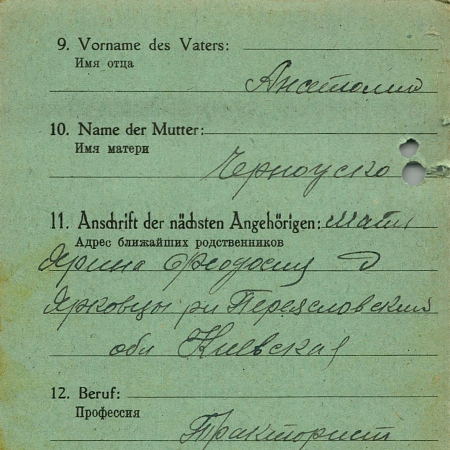 9. Vorname des Vaters:
Имя отца
Анатолий
10. Name der Mutter:
Имя матери
Черноуско
11. Anschrift der nächsten Angehörigen: мать
Адрес ближайших родственников
Ярина Феодосия д
Ярковцы рн Переясловский
обл Киевская
12. Beruf:
Профессия
Тракторист